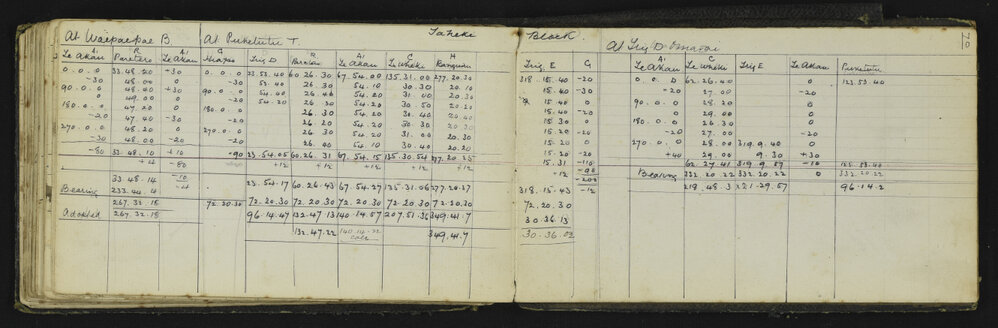 At Waipaepae B. At Puketutu T. Taheke Block. At Trig D Omarae 70
A1 R A1 G R A1 C H
Te Akau Paretero Te Akau Trig D Te Akau Te Wheki Rangiuru Trig E G
A1 C
Te Akau Te Wheki Trig E Te Akau Puketutu
0. 0. 0 33. 48. 20 -30 0. 0. 0 23. 53. 40 60. 26. 30 67. 54. 00 135. 31. 00 277. 20. 30 318. 15. 40 -20 0. 0. 0 62. 26. 40 0 123. 53. 40
-30 48. 00 0 -30 53. 40 26. 30 54. 10 30. 30 20. 10 15. 40 -30 -20 27. 00 -20
90. 0. 0 48. 40 +30 90. 0. 0 54. 00 26. 40 54. 20 31. 00 20. 30 15. 40 0 90. 0. 0 28. 20 0
0 49. 00 0 -20 54. 20 26. 30 54. 20 30. 50 20. 20 15. 40 -20 0 29. 00 0
180. 0. 0 47. 20 0 180. 0. 0 26. 30 54. 20 30. 40 20. 40 15. 30 0 180. 0. 0 26. 30 0
-20 47. 40 -30 -20 26. 20 54. 20 30. 40 20. 30 15. 20 -20 -20 27. 00 -20
270. 0. 0 48. 20 0 270. 0. 0 26. 30 54. 20 31. 00 20. 30 15. 20 0 270. 0. 0 28. 00 319. 9. 40 0
-30 48. 00 -20 -30 26. 00 54. 10 30. 40 20. 20 15. 20 -20 +40 29. 00 9. 30 +30
-80 33. 48. 10 +10 -90 23. 54. 05 60. 26. 31 67. 54. 15 135. 30. 54 277. 20. 25 15. 31 -110 62. 27. 41 319. 9. 57 -10 125. 53. 40
+4 -80 +12 +12 +12 +12 +12 +12 -90 Bearing 332. 20. 22 332. 20. 22 0 332. 20. 22
33. 48. 14 -10 23. 54. 17 60. 26. 43 67. 54. 27 135. 31. 06 277. 20. 37 318. 15. 43 -200 96. 14. 2
Bearing 233. 44. 4 -4 72. 20. 30 72. 20. 30 72. 20. 30 72. 20. 30 72. 20. 30 72. 20. 30 72. 20. 30 -12
267. 32. 18 96. 14. 47 132. 47. 13 140. 14. 57 207. 51. 36 349. 41. 7 30. 36. 13
Adopted 267. 32. 18 132. 47. 22 140. 14. 22 349. 41. 7 30. 36. 03
calc